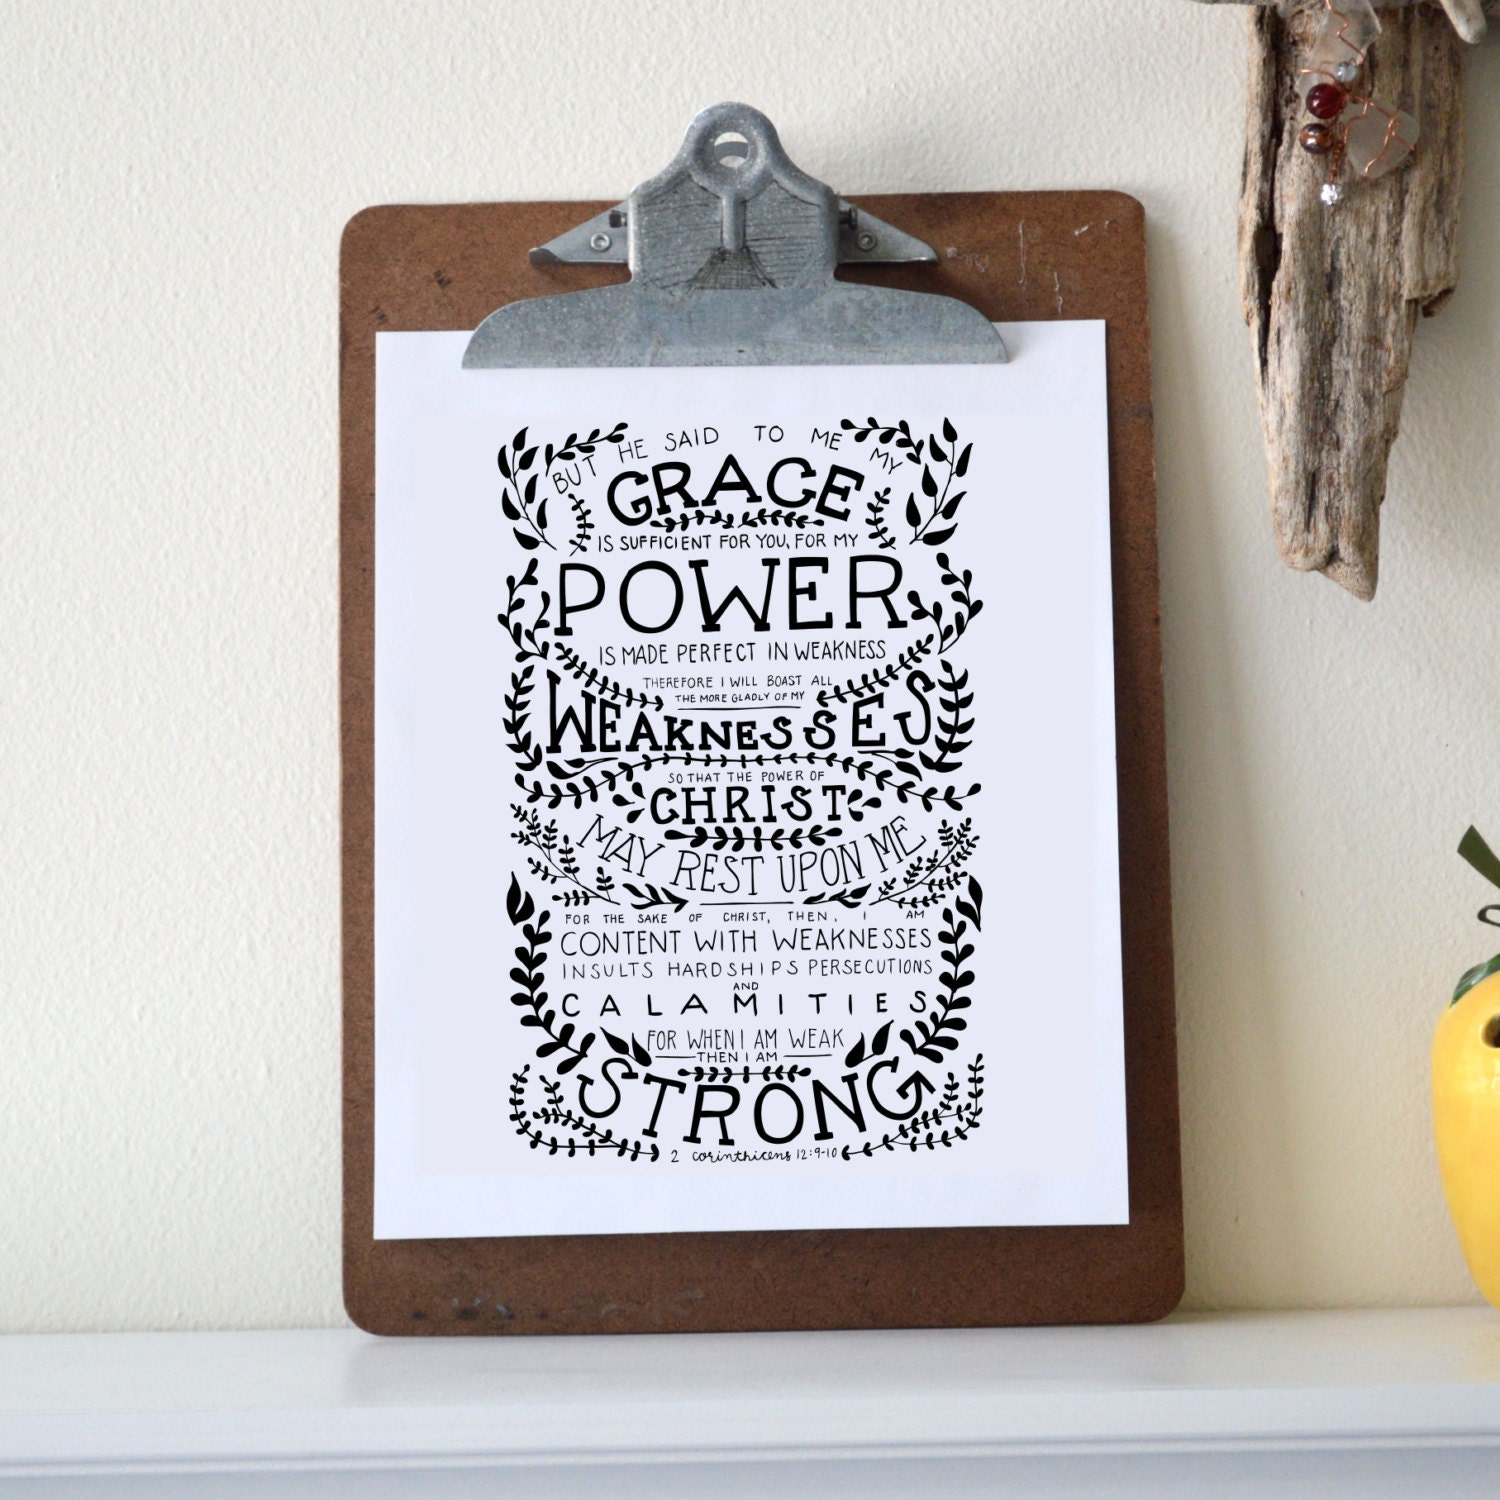 BUT HE SAID TO ME MY
GRACE
IS SUFFICIENT FOR YOU, FOR MY
POWER
IS MADE PERFECT IN WEAKNESS
THEREFORE I WILL BOAST ALL
THE MORE GLADLY OF MY
WEAKNESSES
SO THAT THE POWER OF
CHRIST
MAY REST UPON ME
FOR THE SAKE OF CHRIST, THEN, I AM
CONTENT WITH WEAKNESSES
INSULTS HARDSHIPS PERSECUTIONS
AND
CALAMITIES
FOR WHEN I AM WEAK
THEN I AM
STRONG
2 corinthicens 12:9-10